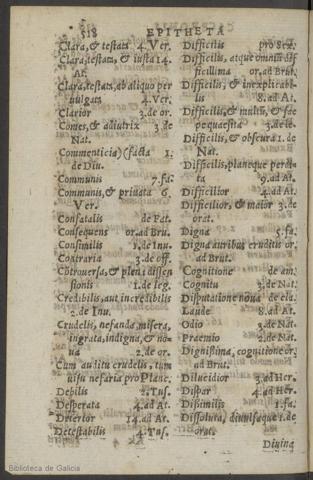 518
EPITHETA
Clara, & testata 4. Ver.
Clara, testata, & iusta 14.
At.
Clara, testata, ab aliquo per
uulgata 4. Ver.
Clarior 3. de or.
Comes, & adiutrix 3. de
Nat.
Commenticia) (facta 1.
de Diu.
Communis 7. fa.
Communis, & priuata 6.
Ver.
Confatalis de Fat.
Consequens or. ad Bru.
Consimilis 1. de Inu.
Contraria 3. de off.
Cōtrouersa, & plena dissen
sionis 1. de leg.
Credibilis, aut incredibilis
2. de Inu.
Crudelis, nefanda, misera,
ingrata, indigna, & no-
ua 2. de or.
Cum auditu crudelis, tum
uisu nefaria pro Planc.
Debilis 2. Tus.
Desperata 4. ad At.
Deterior 14. ad At.
Detestabilis 4. Tus.
Difficilis pro Sex.
Difficilis, atque omniū dif
ficillima or. ad Brut.
Difficilis, & inexplicabi-
lis 8. ad At.
Difficilis, & multū, & sæ
pe quæsita 3. de le.
Difficilis, & obscura 1. de
Nat.
Difficilis, planeque perdi-
ta 9. ad At.
Difficilior 4. ad At.
Difficilior, & maior 3. de
orat.
Digna 5. fa.
Digna auribus eruditis or.
ad Brut.
Cognitione de am.
Cognitu 3. de Nat.
Disputatione noua de cla.
Laude 8. ad At.
Odio 3. de Nat.
Praemio 2. de Nat.
Dignissima, cognitione or.
ad Brut.
Dilucidior 3. ad Her.
Dispar 4. ad Her.
Dissimilis 1. fa.
Dissoluta, diuulsaque 1. de
orat.
Diuina
Biblioteca de Galicia